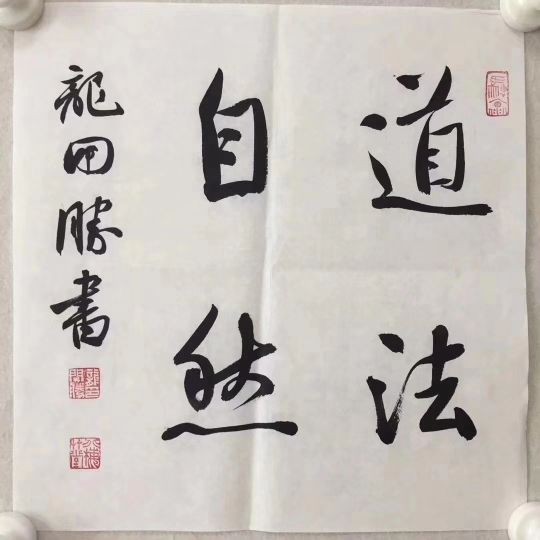 道法
自然
龍田勝書